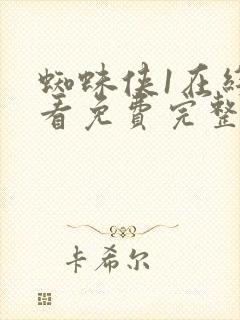 蜘蛛侠1在线
看免費完整
卡希尔